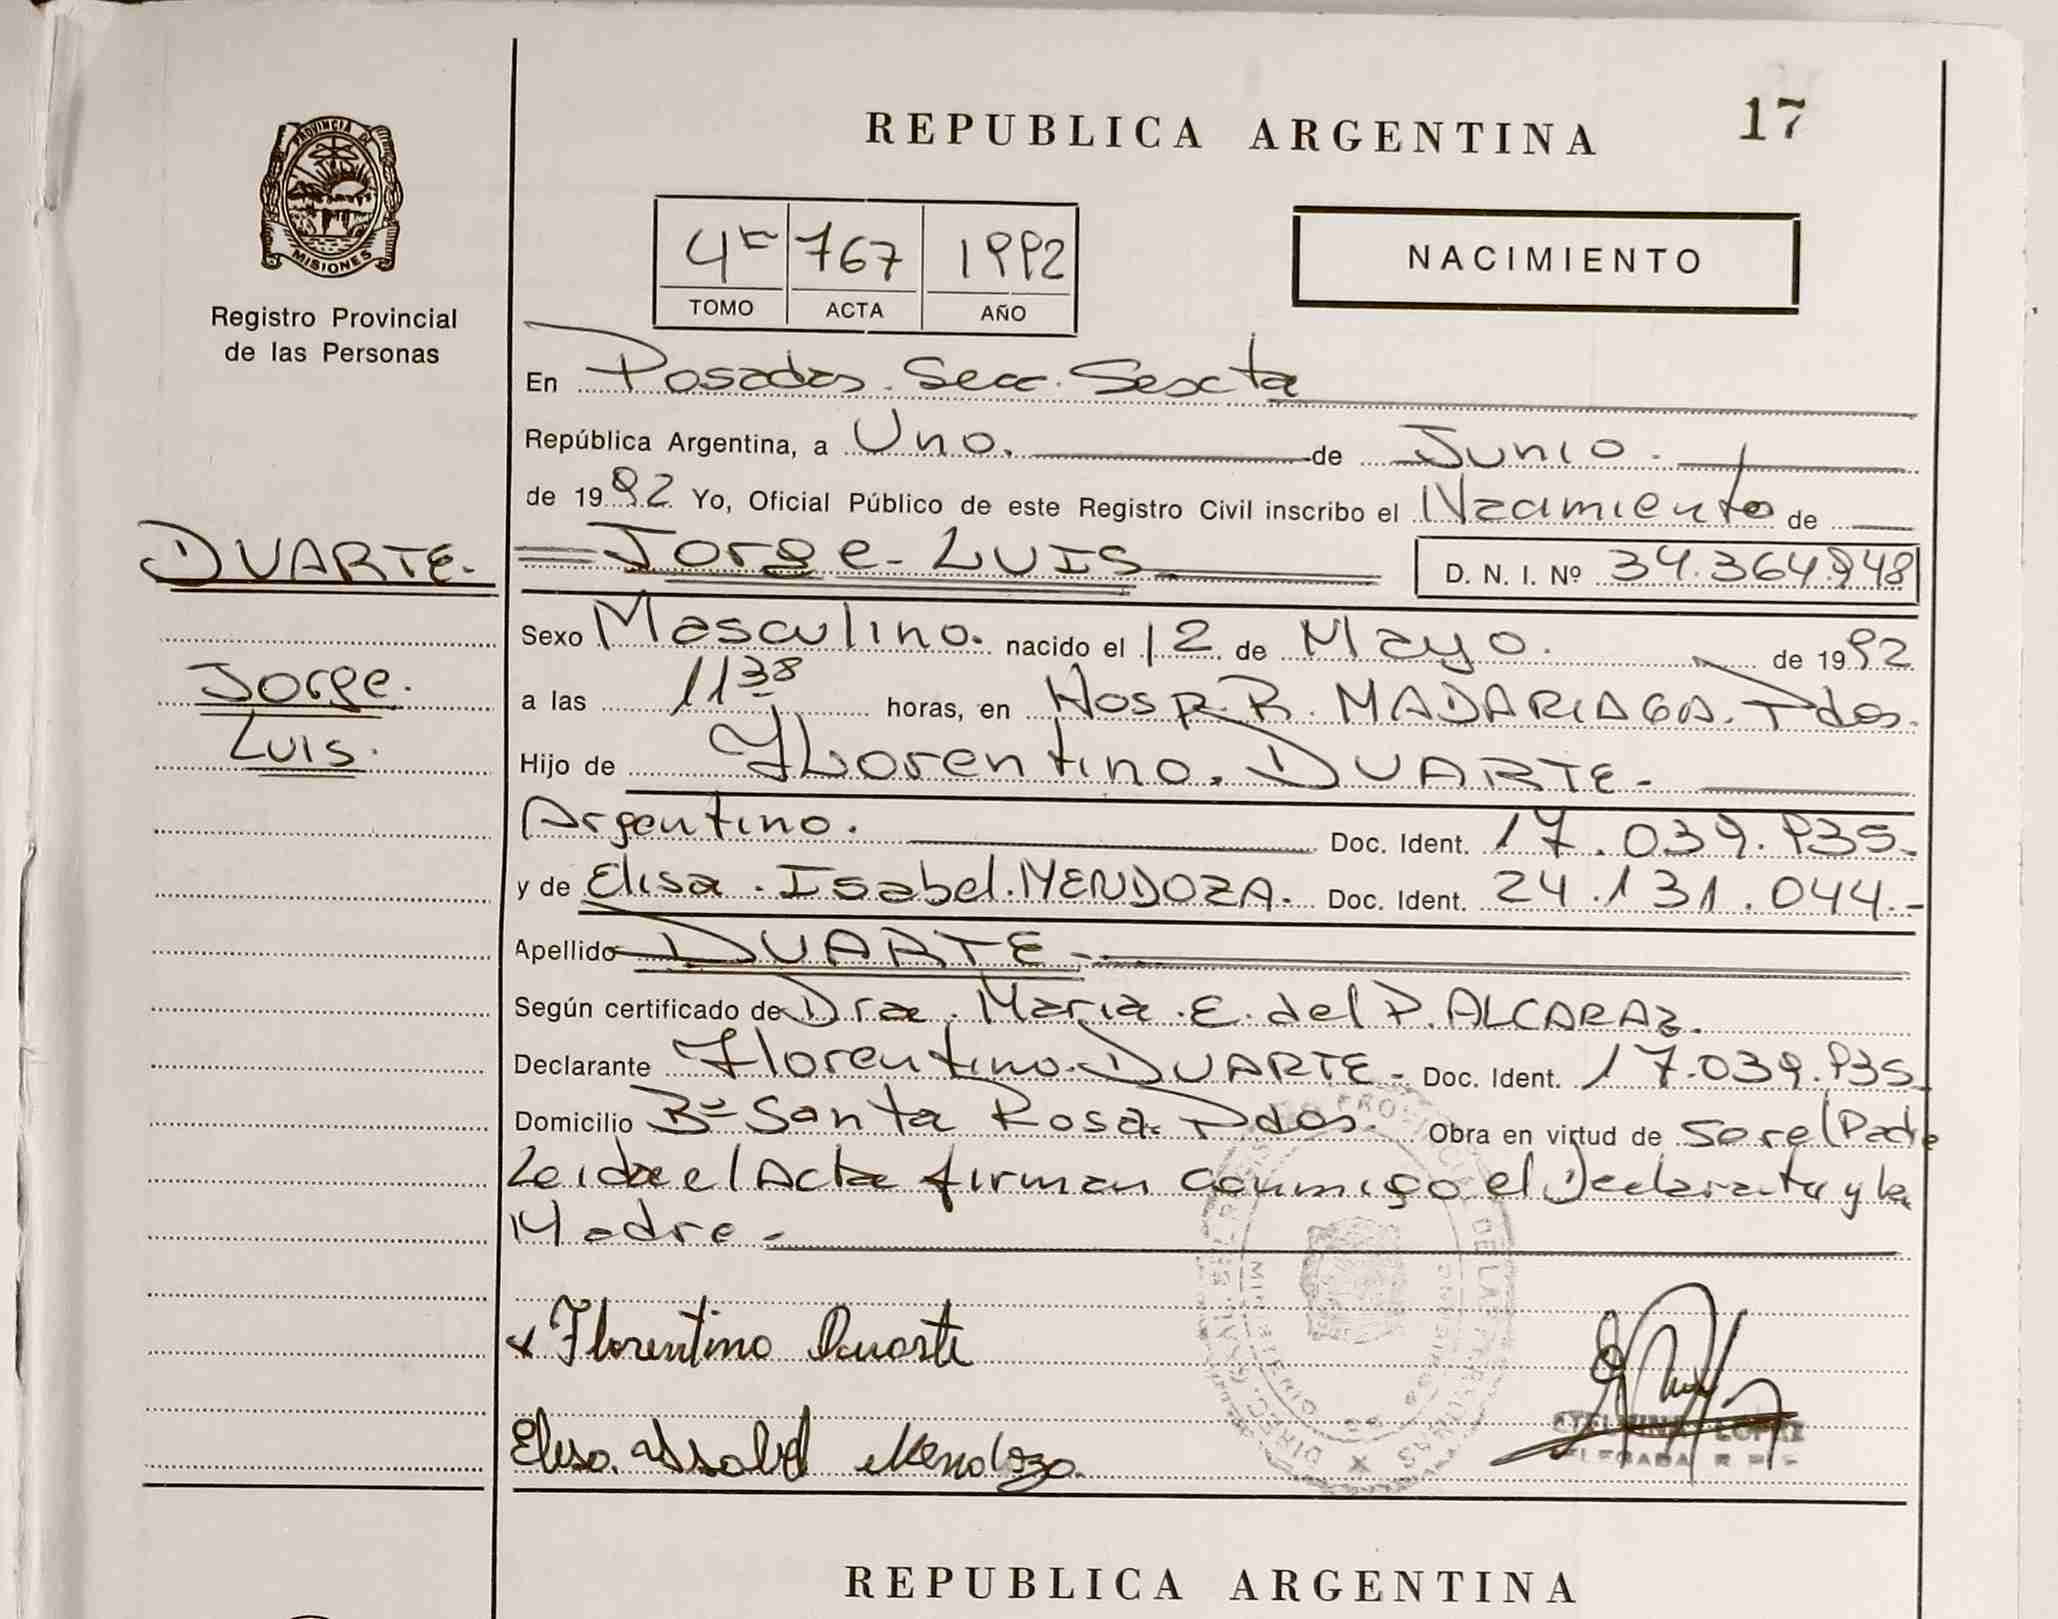 REPUBLICA ARGENTINA
17
PROVINCIA DE
MISIONES
Registro Provincial
de las Personas
4º 767 1992
TOMO ACTA AÑO
NACIMIENTO
En Posadas. Secc. Sexta
República Argentina, a Uno. de Junio.
de 1992 Yo, Oficial Público de este Registro Civil inscribo el Nacimiento de
DUARTE. Jorge LUIS D. N. I. Nº 34.364.948
Sexo Masculino. nacido el 12 de Mayo. de 1992
Jorge.
a las 11 38 horas, en Hosp. R. MADARIAGA. Pdas.
Luis.
Hijo de Florentino. DUARTE
Argentino. Doc. Ident. 17.039.935
y de Elisa. Isabel. MENDOZA. Doc. Ident. 24.131.044
Apellido DUARTE
Según certificado de Dra. Maria. E. del P. ALCARAZ.
Declarante Florentino. DUARTE Doc. Ident. 17.039.935
Domicilio Bº Santa Rosa. Pdas. Obra en virtud de ser el Padre
Leida el Acta firman conmigo el Declarante y la
Madre
Florentino Duarte
Elisa Issabel Mendoza
LOPEZ
DELEGADA R P P
REPUBLICA ARGENTINA